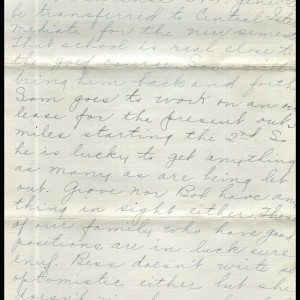 be transferred to Central
mediate for the new semes
That school is real close to
the golf course. Sam will
bring him back and forth
Sam goes to work on an
lease for the present out
miles starting the 2nd. So
he is lucky to get anything
as many as are being let
out. Grove nor Bob have any
thing in sight either. Those
of our family who have good
positions are in luck sure
enuf. Bess doesn't write
optomistic either but she
doesn't